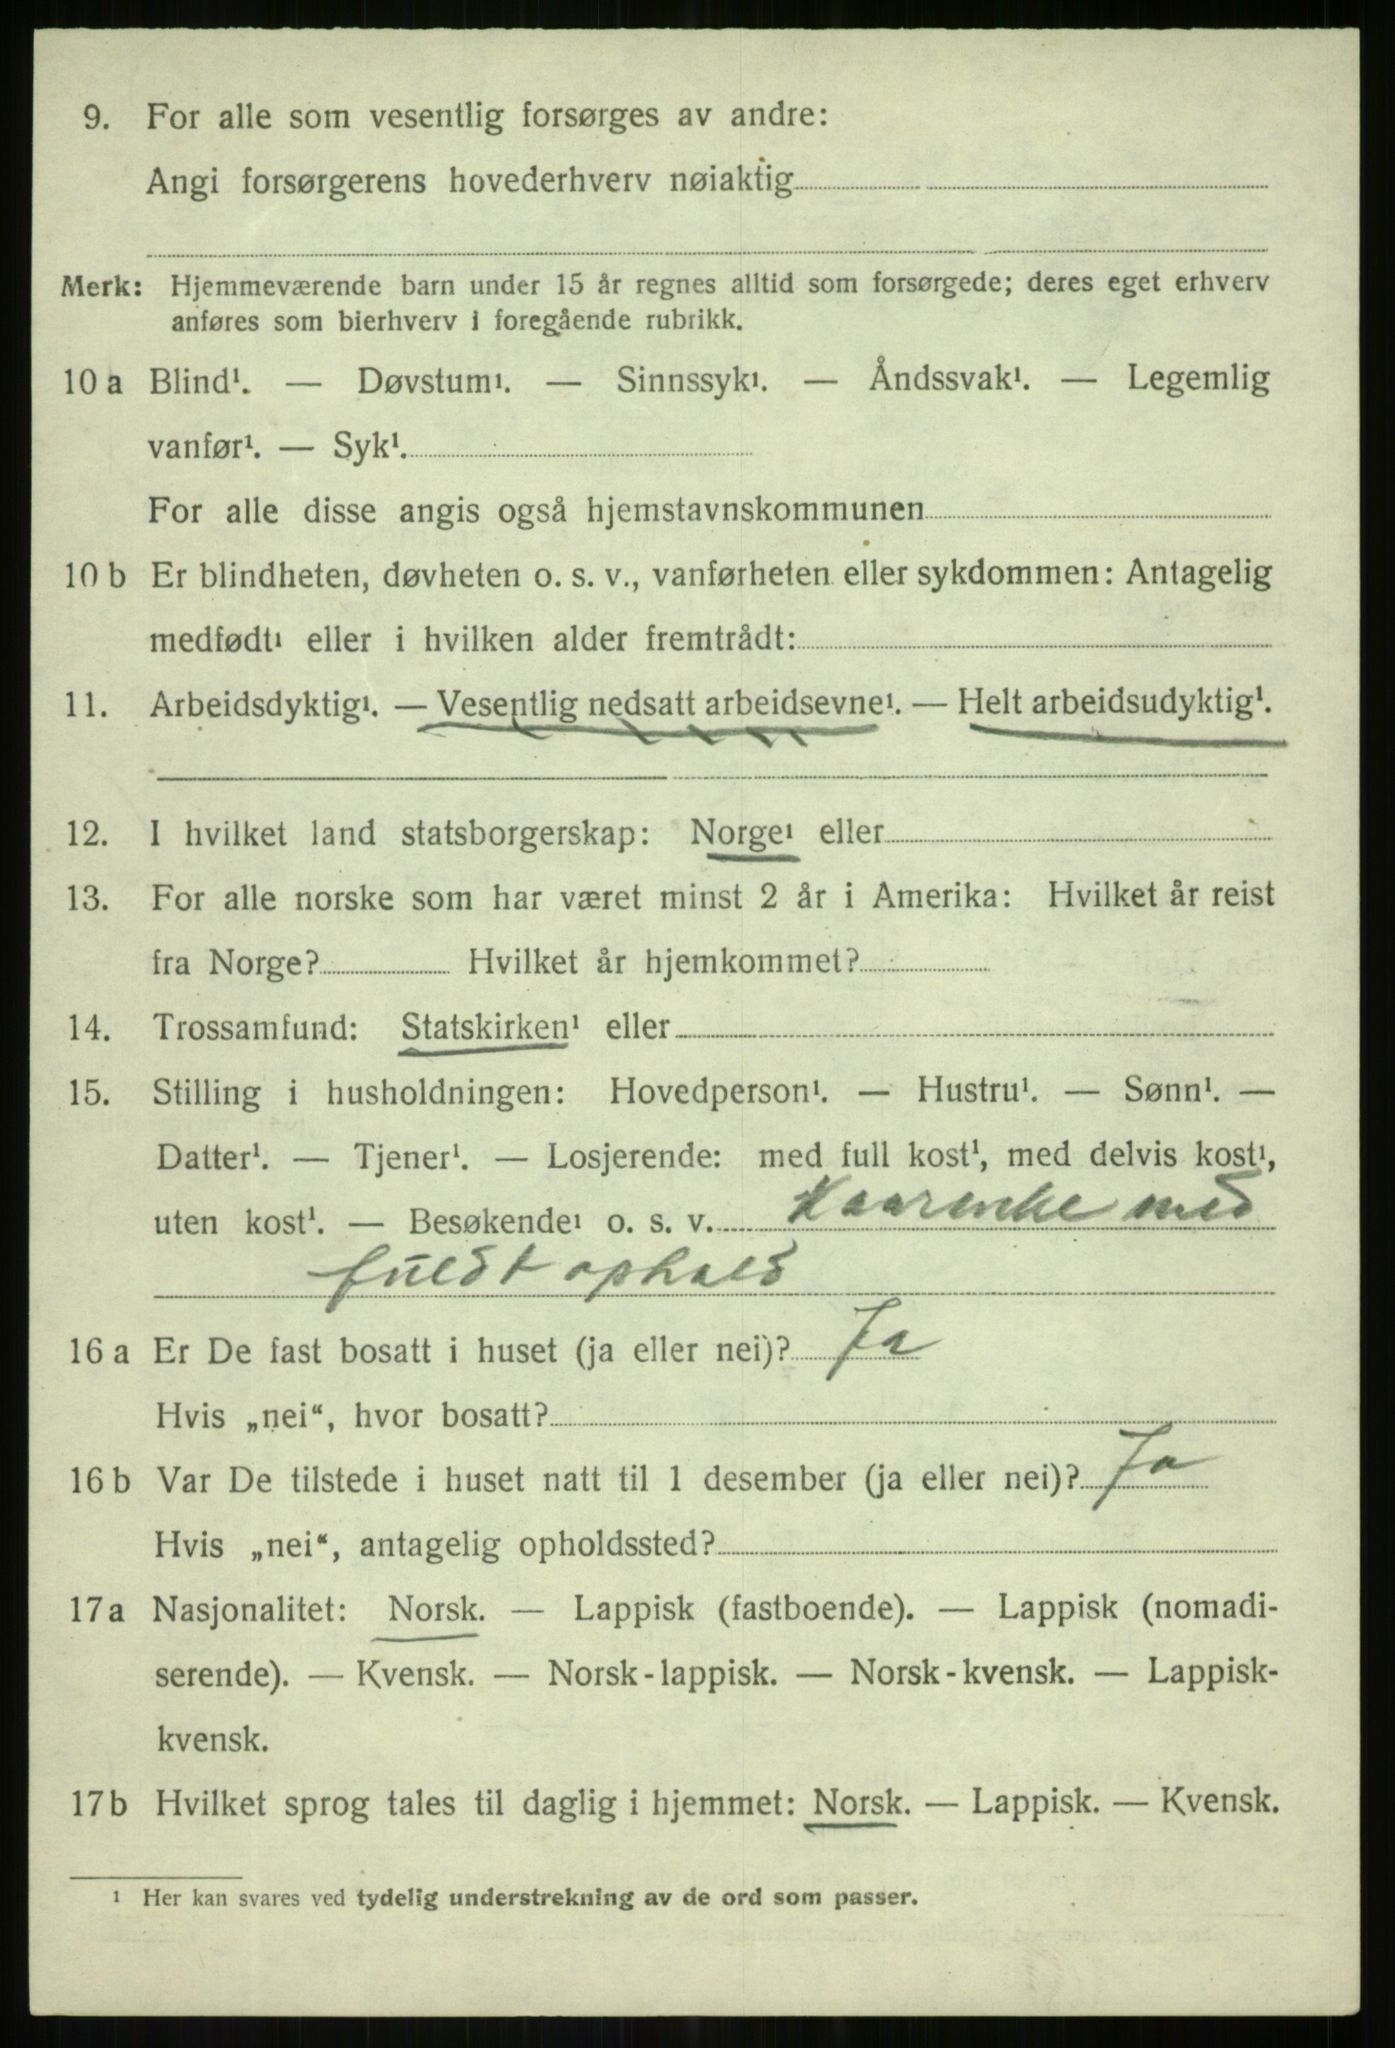 9. For alle som vesentlig forsørges av andre:
Angi forsørgerens hovederhverv nøiaktig
Merk: Hjemmeværende barn under 15 år regnes alltid som forsørgede; deres eget erhverv
anføres som bierhverv i foregående rubrikk.
10 a Blind¹. — Døvstum¹. — Sinnssyk¹. — Åndssvak¹. — Legemlig
vanfør¹. — Syk¹.
For alle disse angis også hjemstavnskommunen
10 b Er blindheten, døvheten o. s. v., vanførheten eller sykdommen: Antagelig
medfødt¹ eller i hvilken alder fremtrådt:
11. Arbeidsdyktig¹. — Vesentlig nedsatt arbeidsevne¹. — Helt arbeidsudyktig¹.
12. I hvilket land statsborgerskap: Norge¹ eller
13. For alle norske som har været minst 2 år i Amerika: Hvilket år reist
fra Norge? Hvilket år hjemkommet?
14. Trossamfund: Statskirken¹ eller
15. Stilling i husholdningen: Hovedperson¹. — Hustru¹. — Sønn¹. —
Datter¹. — Tjener¹. — Losjerende: med full kost¹, med delvis kost¹,
uten kost¹. — Besøkende¹ o. s. v. med
fuldt ophold
16 a Er De fast bosatt i huset (ja eller nei)? Ja
Hvis „nei“, hvor bosatt?
16 b Var De tilstede i huset natt til 1 desember (ja eller nei)? Ja
Hvis „nei“, antagelig opholdssted?
17 a Nasjonalitet: Norsk. — Lappisk (fastboende). — Lappisk (nomadi-
serende). — Kvensk. — Norsk-lappisk. — Norsk-kvensk. — Lappisk-
kvensk.
17 b Hvilket sprog tales til daglig i hjemmet: Norsk. — Lappisk. — Kvensk.
¹ Her kan svares ved tydelig understrekning av de ord som passer.